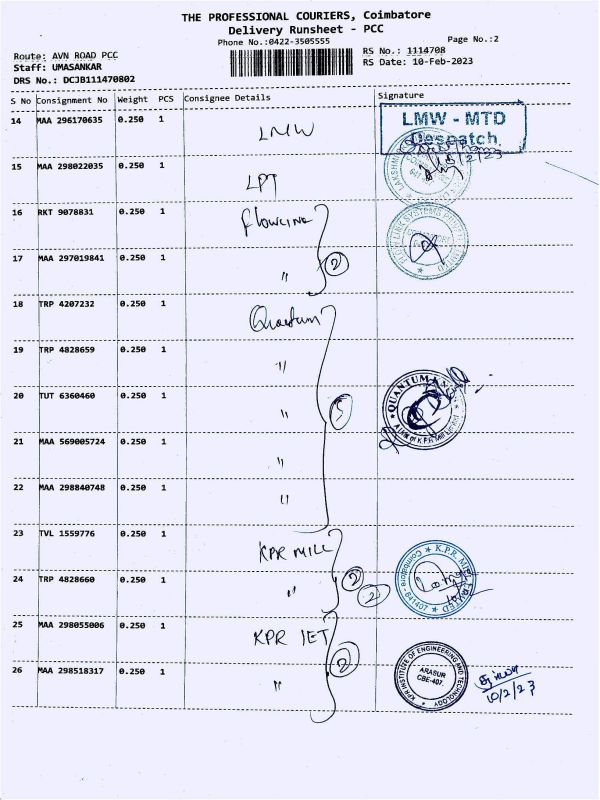 THE PROFESSIONAL COURIERS, Coimbatore
Delivery Runsheet - PCC
Phone No.:0422-3505555
Page No.:2
Route: AVN ROAD PCC
Staff: UMASANKAR
DRS No.: DCJB111470802
RS No.: 1114708
RS Date: 10-Feb-2023
S No Consignment No Weight PCS Consignee Details Signature
14 MAA 296170635 0.250 1 LMW
LMW - MTD
Despatch
15 MAA 298022035 0.250 1 LPT
16 RKT 9078831 0.250 1 Flowlink
17 MAA 297019841 0.250 1 〃 2
18 TRP 4207232 0.250 1 Quantum
19 TRP 4828659 0.250 1 〃
20 TUT 6360460 0.250 1 〃 5
QUANTUM KNITS
A Unit of K.P.R Mill Limited
21 MAA 569005724 0.250 1 〃
22 MAA 298840748 0.250 1 〃
23 TVL 1559776 0.250 1 KPR MILL
24 TRP 4828660 0.250 1 〃 2 2
K.P.R. MILL LIMITED
Coimbatore - 641407
25 MAA 298055006 0.250 1 KPR IET
26 MAA 298518317 0.250 1 〃 2
KPR INSTITUTE OF ENGINEERING AND TECHNOLOGY
ARASUR
CBE-407.
10/2/23